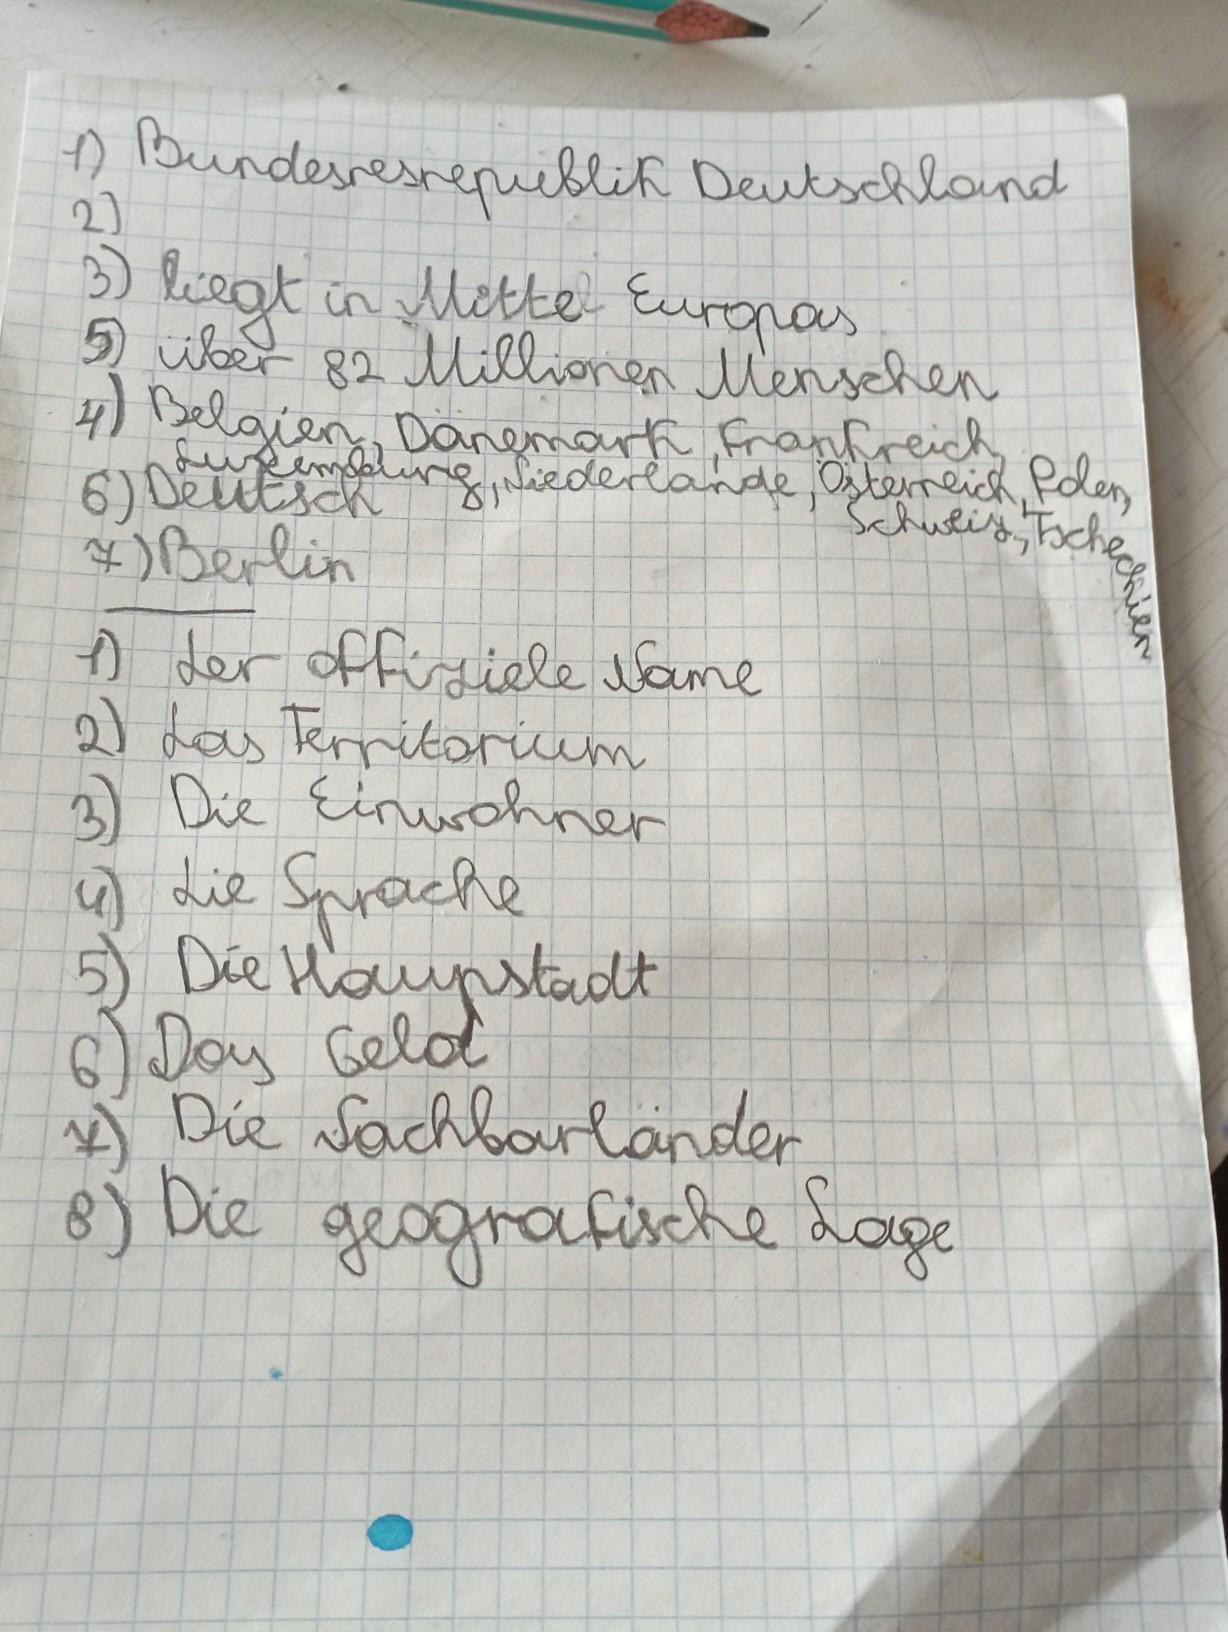 1) Bundesresrepublik Deutschland
2)
3) liegt in Mittel Europas
5) über 82 Millionen Menschen
4) Belgien, Dänemark, Frankreich,
Luxemburg, Niederlande, Österreich, Polen,
Schweiz, Tschechien
6) Deutsch
7) Berlin
1) der offiziele Name
2) das Territorium
3) Die Einwohner
4) die Sprache
5) Die Haupstadt
6) Das Geld
7) Die Nachbarländer
8) Die geografische Lage